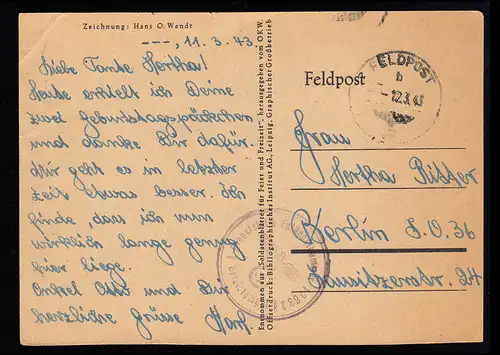 Zeichnung: Hans O. Wendt
---, 11.3.43.
Liebe Tante Hertha!
Heute erhielt ich Deine
zwei Geburtstagspäckchen
und danke Dir dafür.
Mir geht es in letzter
Zeit etwas besser. Ich
finde, dass ich nun
wirklich lange genug
hier liege.
Onkel Otto und Dir
herzliche Grüsse Karl.
Entnommen aus „Soldatenblätter für Feier und Freizeit“, herausgegeben vom OKW.
Offsetdruck: Bibliographisches Institut AG., Leipzig, Graphischer Großbetrieb
Feldpost
FELDPOST
b
-12.3.43
Frau
Hertha Ritter
Berlin S.O. 36
Lausitzerstr. 24